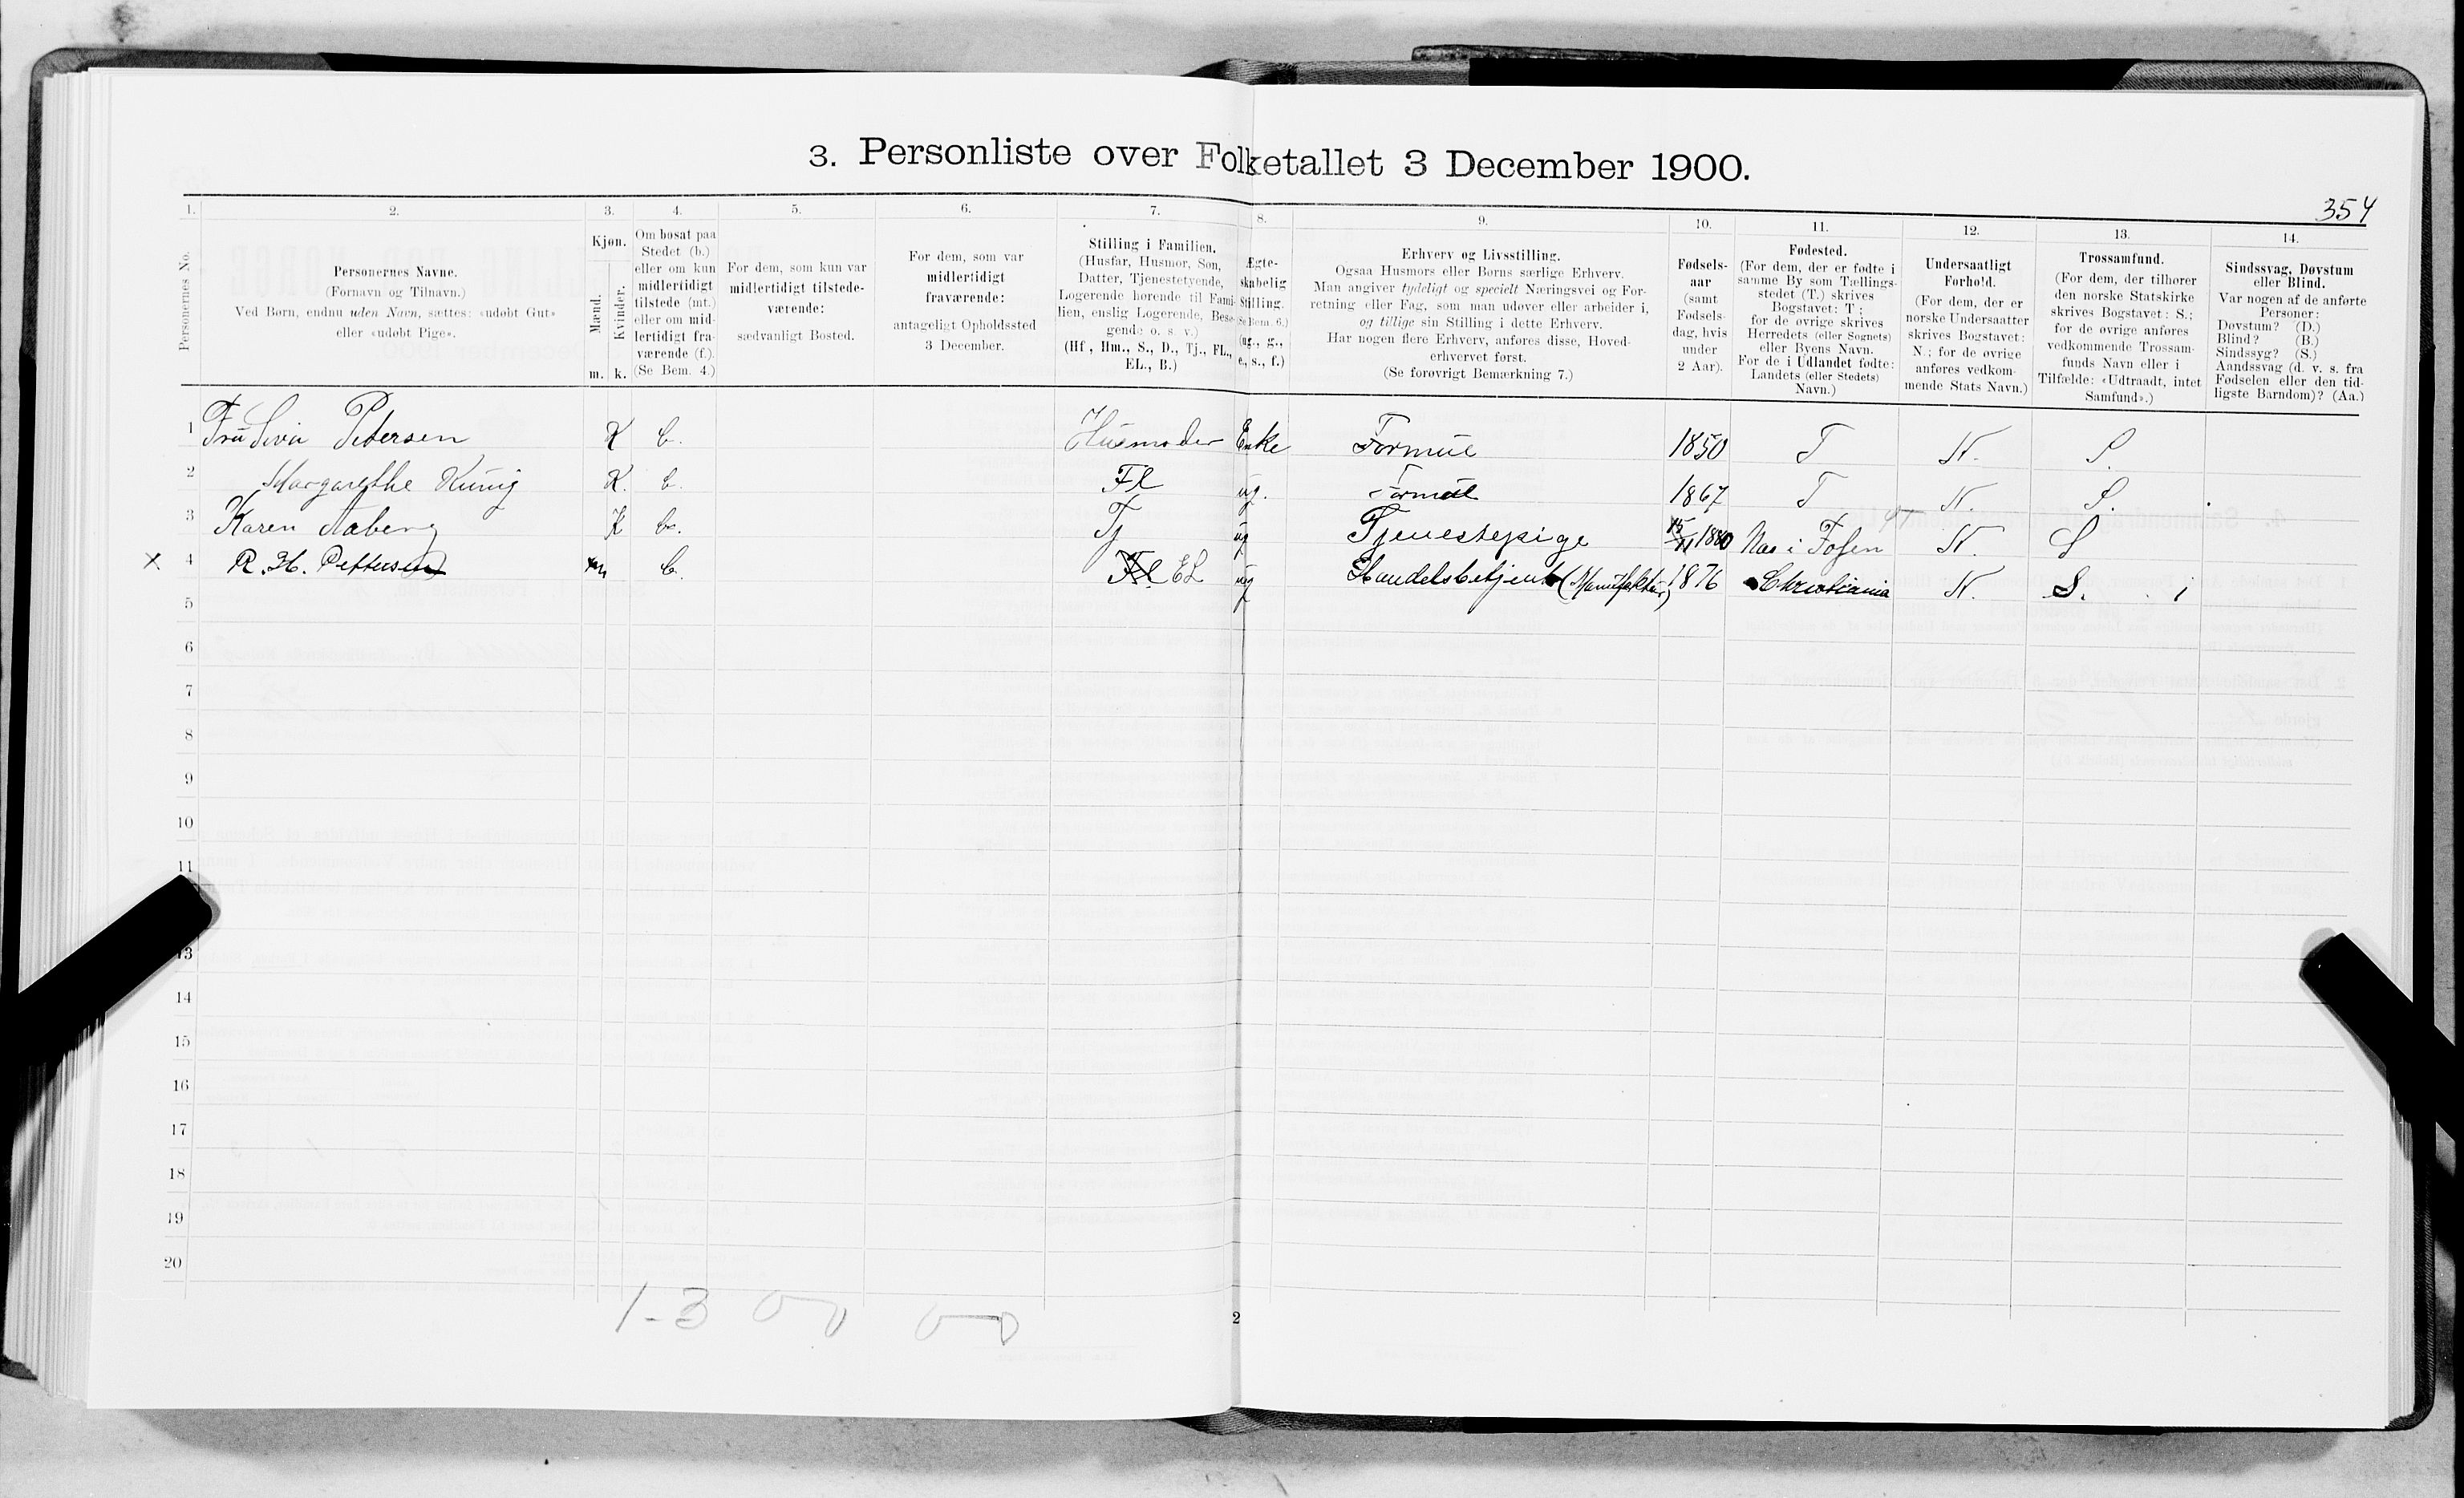 3. Personliste over Folketallet 3 December 1900.
354
1. 2. 3. 4. 5. 6. 7. 8. 9. 10. 11. 12. 13. 14.
Personernes No.
Personernes Navne.
(Fornavn og Tilnavn.)
Ved Børn, endnu uden Navn, sættes: «udøbt Gut»
eller «udøbt Pige».
Kjøn.
Mænd.
Kvinder.
m. k.
Om bosat paa
Stedet (b.)
eller om kun
midlertidigt
tilstede (mt.)
eller om mid-
lertidigt fra-
værende (f.).
(Se Bem. 4.)
For dem, som kun var
midlertidigt tilstede-
værende:
sædvanligt Bosted.
For dem, som var
midlertidigt
fraværende:
antageligt Opholdssted
3 December.
Stilling i Familien.
(Husfar, Husmor, Søn,
Datter, Tjenestetyende,
Logerende hørende til Fami-
lien, enslig Logerende, Besø-
gende o. s. v.)
(Hf., Hm., S., D., Tj., FL.,
EL., B.)
Ægte-
skabelig
Stilling.
(Se Bem. 6.)
(ug., g.,
e., s., f.)
Erhverv og Livsstilling.
Ogsaa Husmors eller Børns særlige Erhverv.
Man angiver tydeligt og specielt Næringsvei og For-
retning eller Fag, som man udøver eller arbeider i,
og tillige sin Stilling i dette Erhverv.
Har nogen flere Erhverv, anføres disse, Hoved-
erhvervet først.
(Se forøvrigt Bemærkning 7.)
Fødsels-
aar
(samt
Fødsels-
dag, hvis
under
2 Aar).
Fødested.
(For dem, der er fødte i
samme By som Tællings-
stedet (T.) skrives
Bogstavet: T ;
for de øvrige skrives
Herredets (eller Sognets)
eller Byens Navn.
For de i Udlandet fødte:
Landets (eller Stedets)
Navn.)
Undersaatligt
Forhold.
(For dem, der er
norske Undersaatter
skrives Bogstavet:
N.; for de øvrige
anføres vedkom-
mende Stats Navn.)
Trossamfund.
(For dem, der tilhører
den norske Statskirke
skrives Bogstavet: S.;
for de øvrige anføres
vedkommende Trossam-
funds Navn eller i
Tilfælde: «Udtraadt, intet
Samfund».)
Sindssvag, Døvstum
eller Blind.
Var nogen af de anførte
Personer:
Døvstum? (D.)
Blind? (B.)
Sindssyg? (S.)
Aandssvag (d. v. s. fra
Fødselen eller den tid-
ligste Barndom)? (Aa.)
1 Fru Petersen K b. Husmoder Enke Formue 1850 T N. S.
2 Margarethe K. b. Fl ug. Formue 1867 T N. S.
3 Karen Aaberg K b. Tj ug Tjenestepige 15/11 1880 Næs i Fosen N. S
X 4 R. H. Pettersen m b. Fl EL ug Handelsbetjent (Manufaktur) 1876 Christiania N. S. i
5
6
7
8
9
10
11
13
14
15
16
17
18
19
20
1-3 0 0 0-0
2